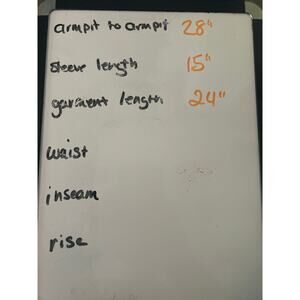 armpit to armpit 28"
sleeve length 15"
garment length 24"
waist
inseam
rise